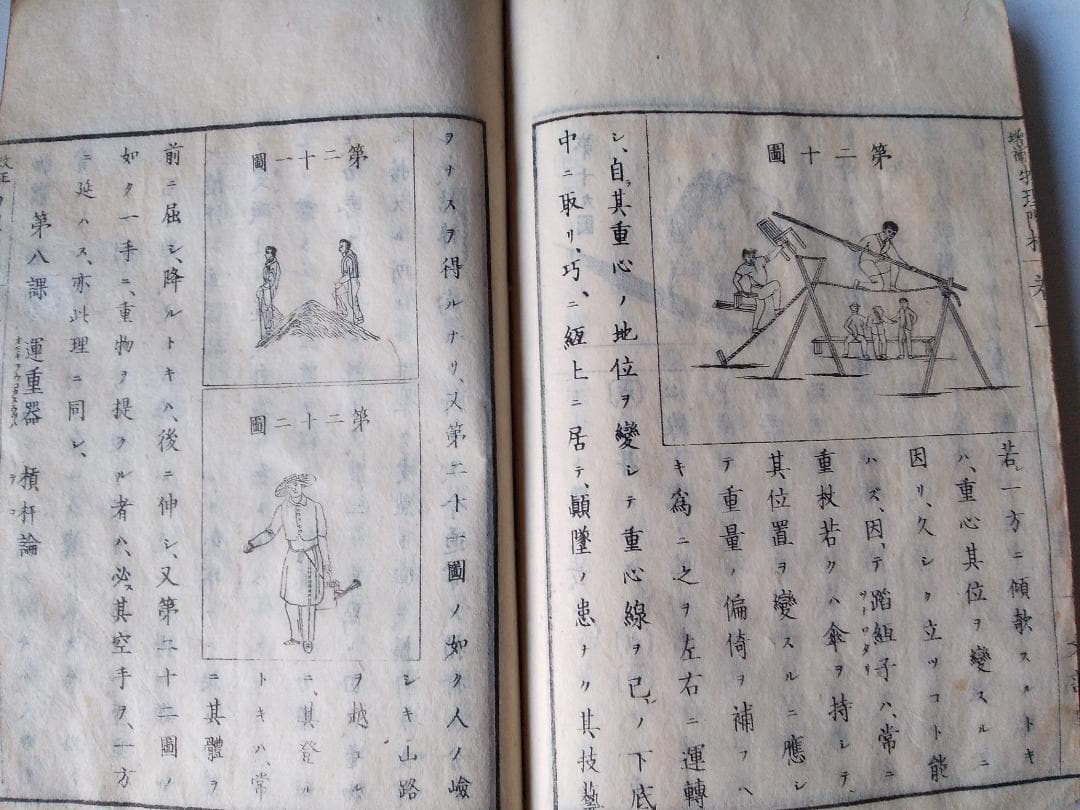 第二十圖
若シ一方ニ傾欹スルトキ
ハ、重心其位ヲ變スルニ
因リ、久シク立ツコト能
ハズ、因テ蹈絙子ハ、常ニ
重杖若クハ傘ヲ持シテ
其位置ヲ變スルニ應シ
テ重量ノ偏倚ヲ補フヘ
キ為ニ之ヲ左右ニ運轉
シ、自ラ其重心ノ地位ヲ變シテ重心線ヲ己ノ下底
中ニ取リ、巧ニ絙上ニ居テ、顚墜ノ患ナク、其技藝
ヲナスヲ得ルナリ、又第二十一圖ノ如ク人ノ嶮
第二十一圖
第二十二圖
シキ山路
ヲ越
ニ、其登ル
トキハ、常
ニ其體ヲ
前ニ屈シ、降ルトキハ、後ニ伸シ、又第二十二圖ノ
如ク一手ニ、重物ヲ提クル者ハ、必ス其空手ヲ、一方
ニ延ハス、亦此理ニ同シ、
第八課 運重器 槓杆論